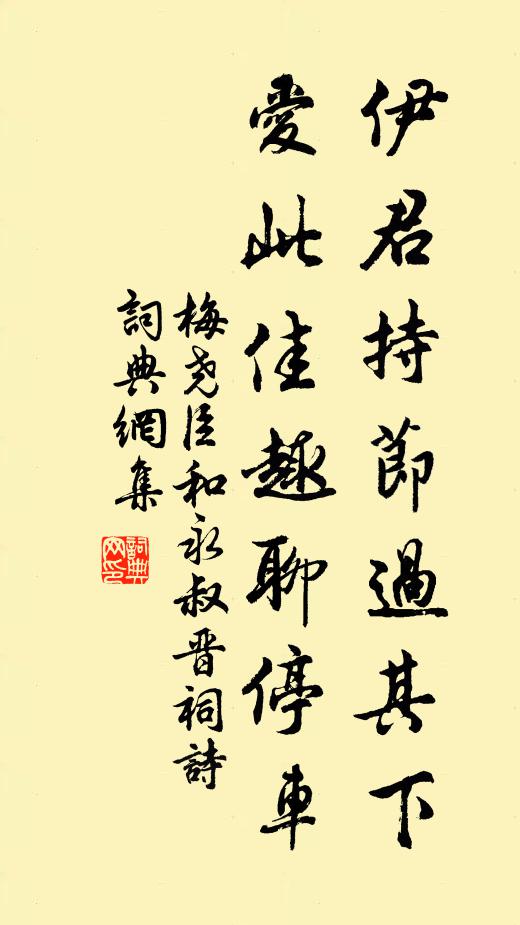 伊君持節過其下
愛此佳趣聊停車
梅尧臣和永叔晋祠詩
詞典網集
詞典網印